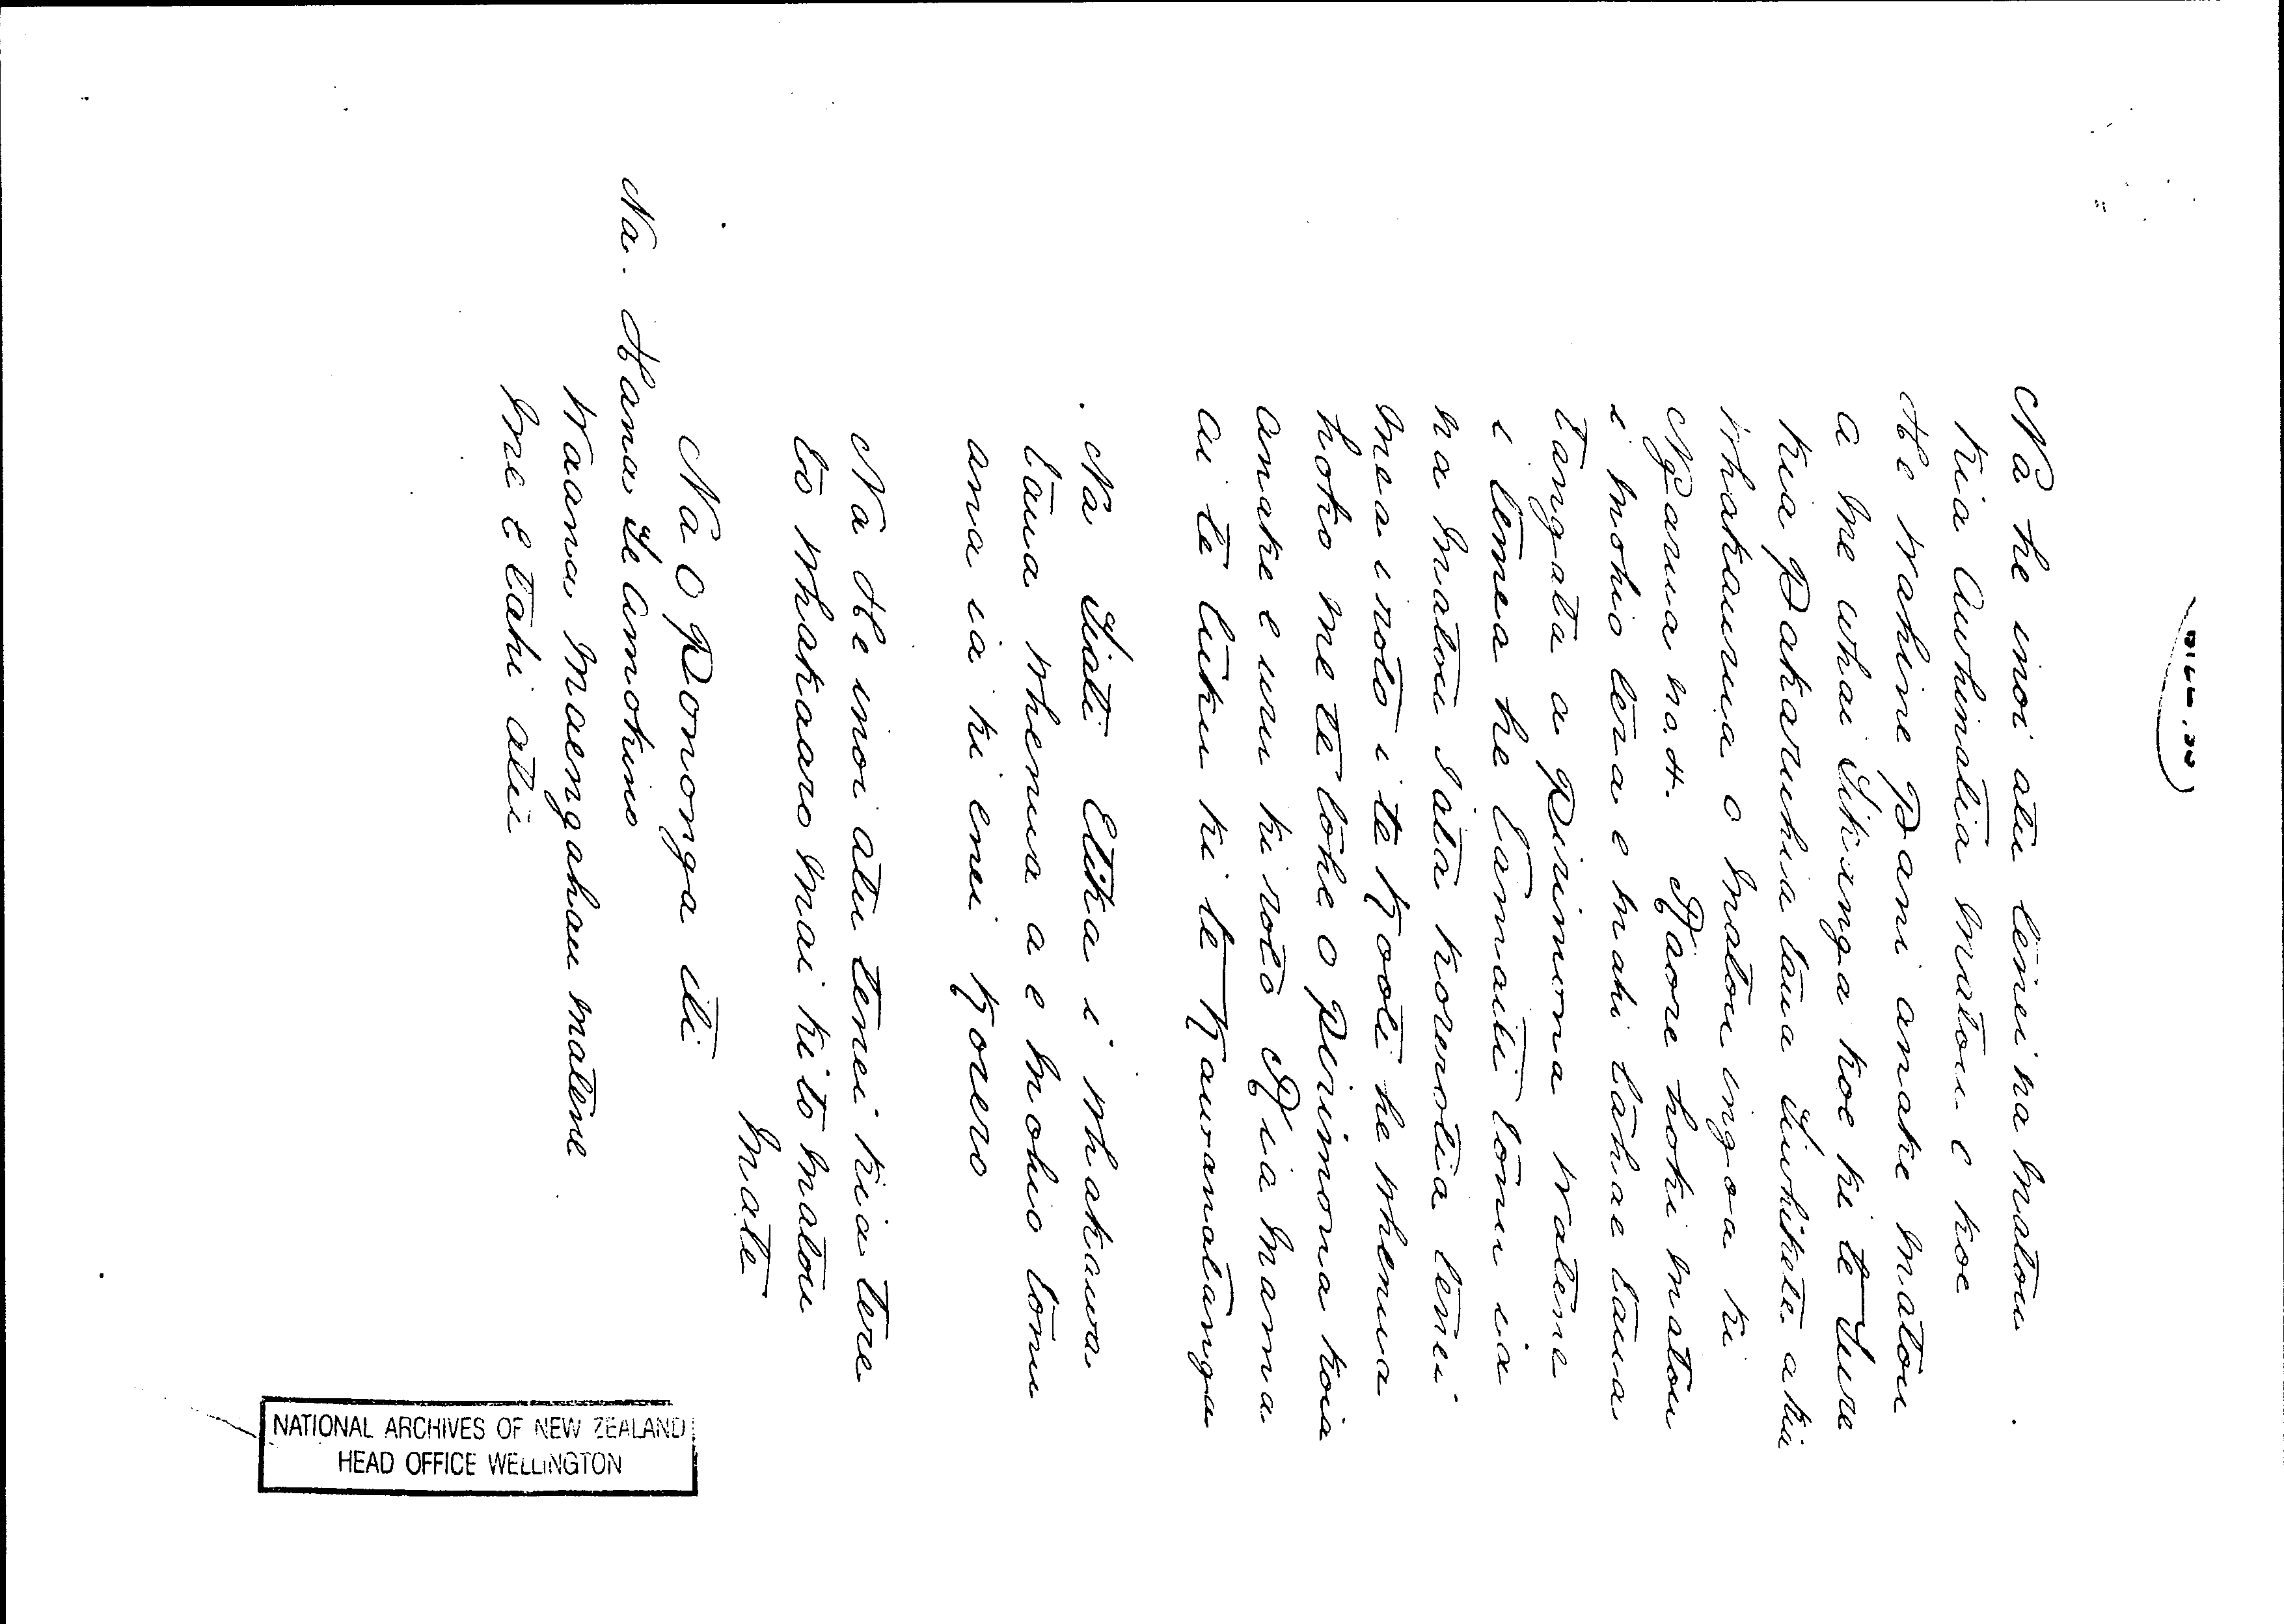 Na he inoi atu tenei na matou
kia Awhinatia matou. e koe
He wahine pani anake matou
a me whai Tikanga koe ki te Ture
kia pakaruhia taua Tiwhikete a kia
whakaurua o matou ingoa ki
Ngarua no. 4. Kaore hoki matou
i mohio tera e mahi tahae taua
tangata a Pirimona Watene
i temea he tamaiti tonu ia
na matou I ata korerotia tenei
mea i roto i te Kooti he whenua
hoko me te tohe o Pirimona koia
anake e uru ki roto Kia mama
ai te tuku ki te Kauramatanga
Na Tiati Etika i whakaura
taua whenua a e mohio tonu
ana ia ki enei Korero
Na He inoi atu tenei kia tere
to whakaaro mai ki to matou
mate
Na O Pononga iti
Na. Hana Te Amohino
Waana Maengahau Matene
me Etahi atu
NATIONAL ARCHIVES OF NEW ZEALAND
HEAD OFFICE WELLINGTON